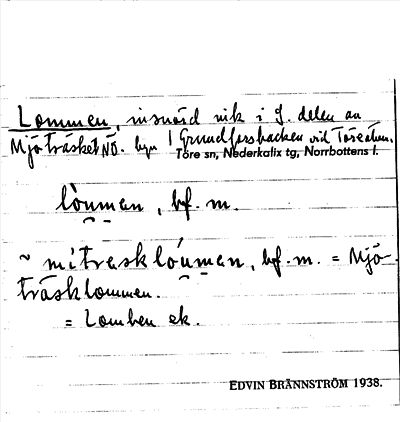 Lommen, insnörd vik i S. delen av
Mjöträsket NÖ. byn Grundforsbacken vid Töreälven.
Töre sn, Nederkalix tg, Norrbottens l.
lòumen, bf. m.
~ mitrasklóumen, bf. m. = Mjö-
träsklommen.
= Lomben ek.
EDVIN BRÄNNSTRÖM 1938.